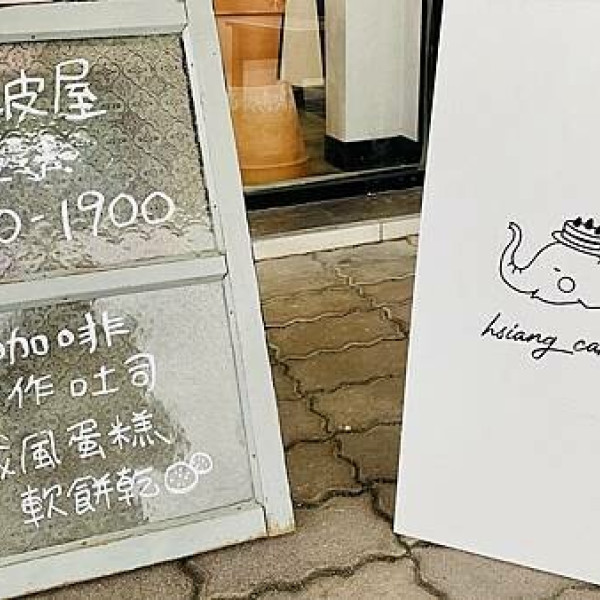 皮屋
0-1900
咖啡
作吐司
風蛋糕
軟餅乾
hsiang_ca